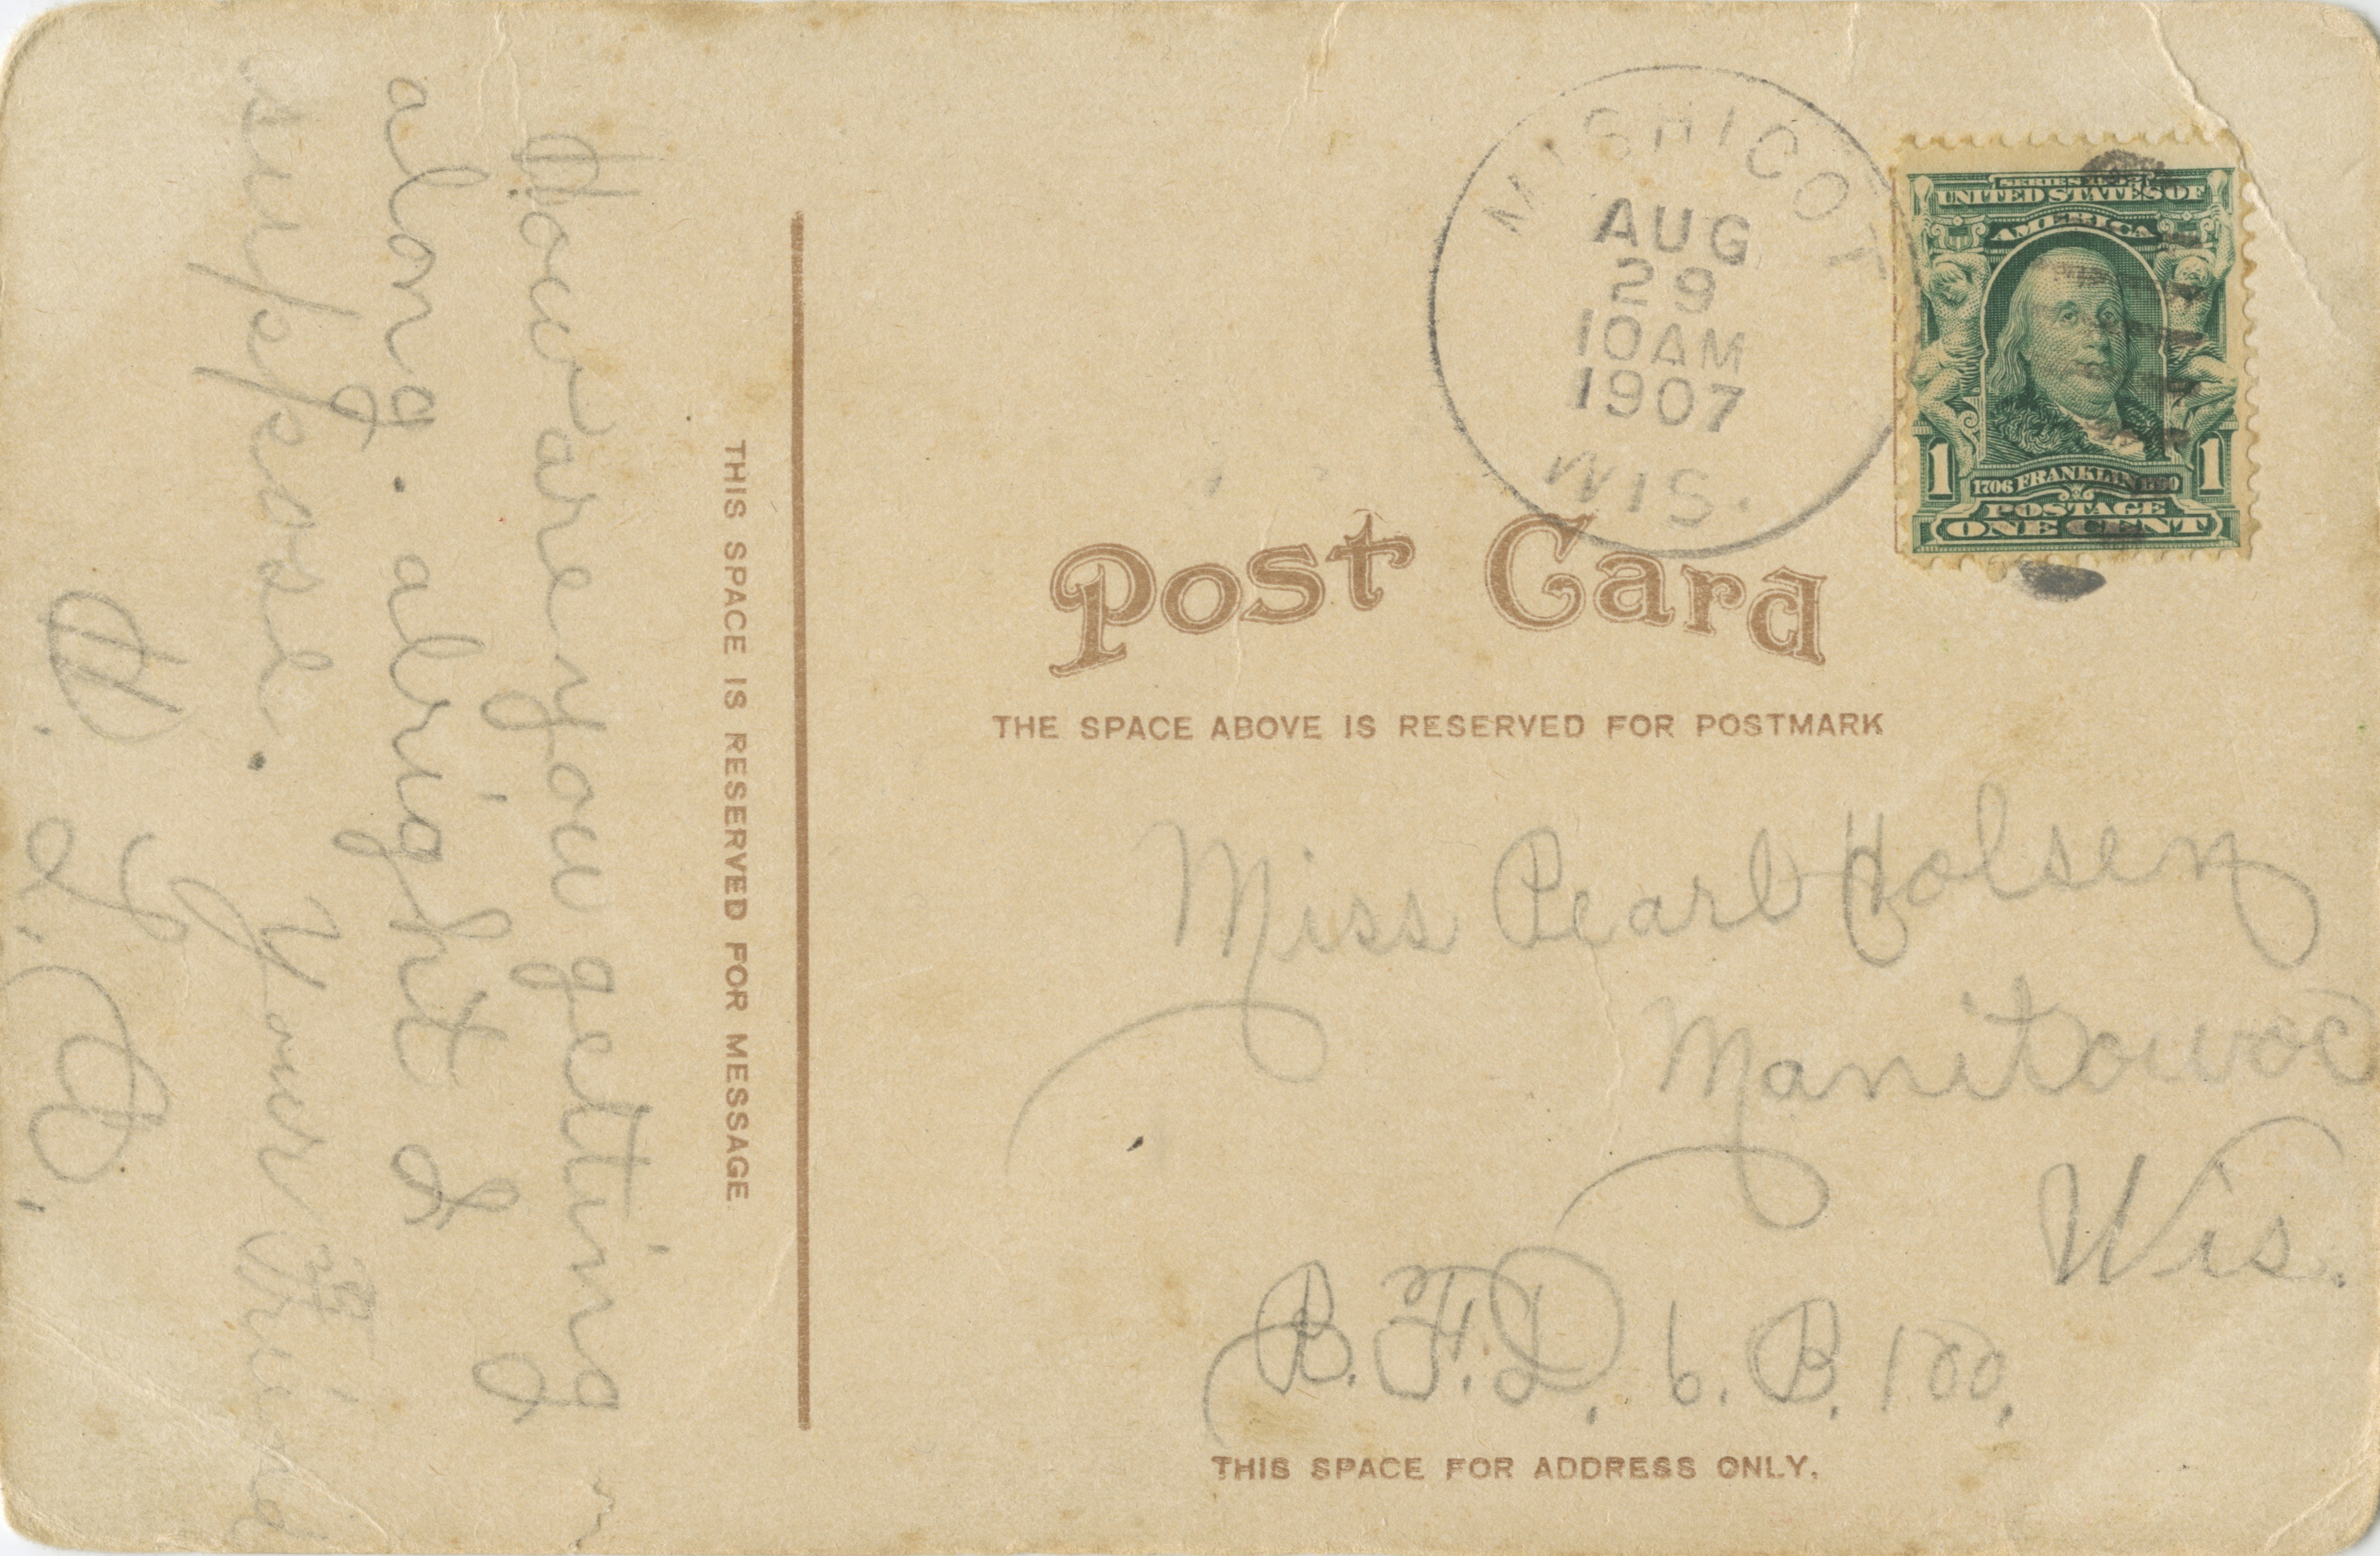 How are you getting
along. alright I
suppose. Your Friend
H. I. C.
THIS SPACE IS RESERVED FOR MESSAGE
MISHICOT
AUG
29
10AM
1907
WIS.
SERIES 1902
UNITED STATES OF
AMERICA
1 1
1706 FRANKLIN 1790
POSTAGE
ONE CENT
Post Card
THE SPACE ABOVE IS RESERVED FOR POSTMARK
Miss Pearl Holsen
Manitowoc
Wis.
R.F.D. 6. B. 100.
THIS SPACE FOR ADDRESS ONLY.